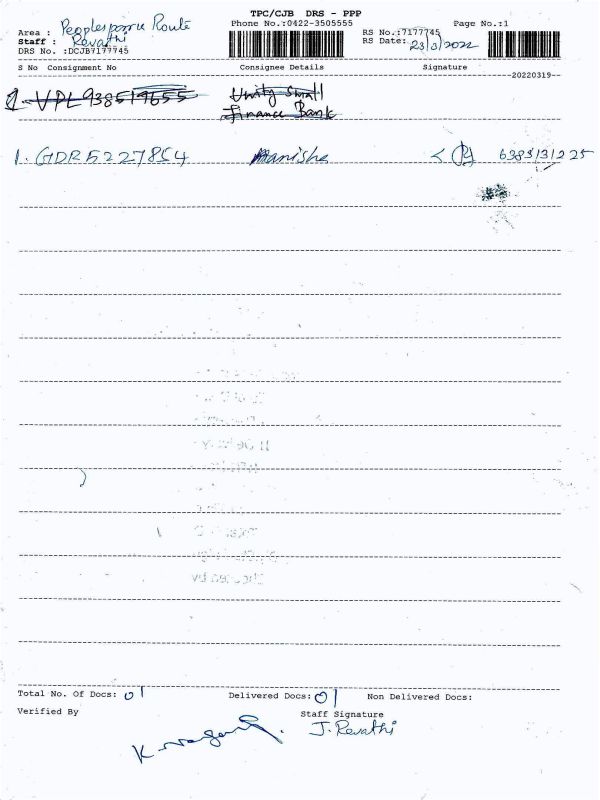 TPC/CJB DRS - PPP
Phone No.:0422-3505555
Page No.:1
Area : Peoplesparru Route
Staff : Revathi
DRS No. :DCJB7177745
RS No.:7177745
RS Date: 23/3/2022
S No Consignment No Consignee Details Signature
20220319
1. VPL938519655 Unity Small
Finance Bank
1. GDR5227854 Manisha
Total No. Of Docs: 01 Delivered Docs: 01 Non Delivered Docs:
Verified By Staff Signature
J. Revathi